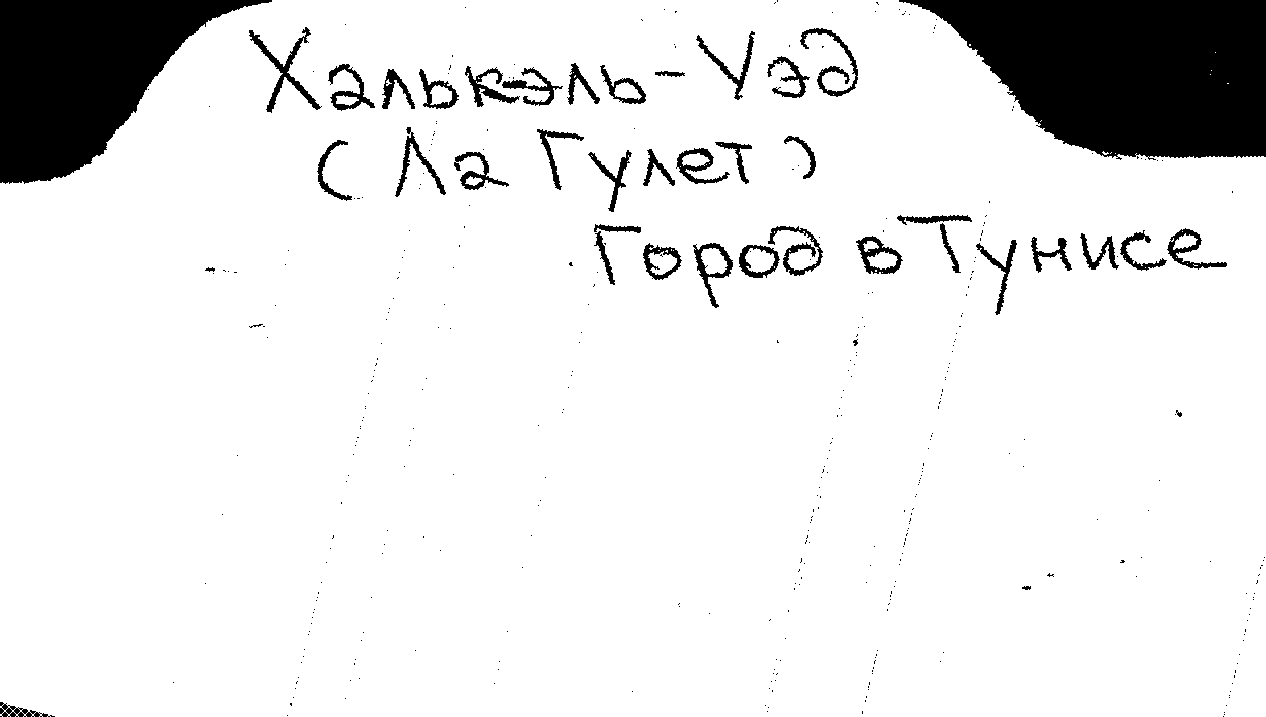 Хальк-эль-Уэд
(Ла Гулет)
Город в Тунисе